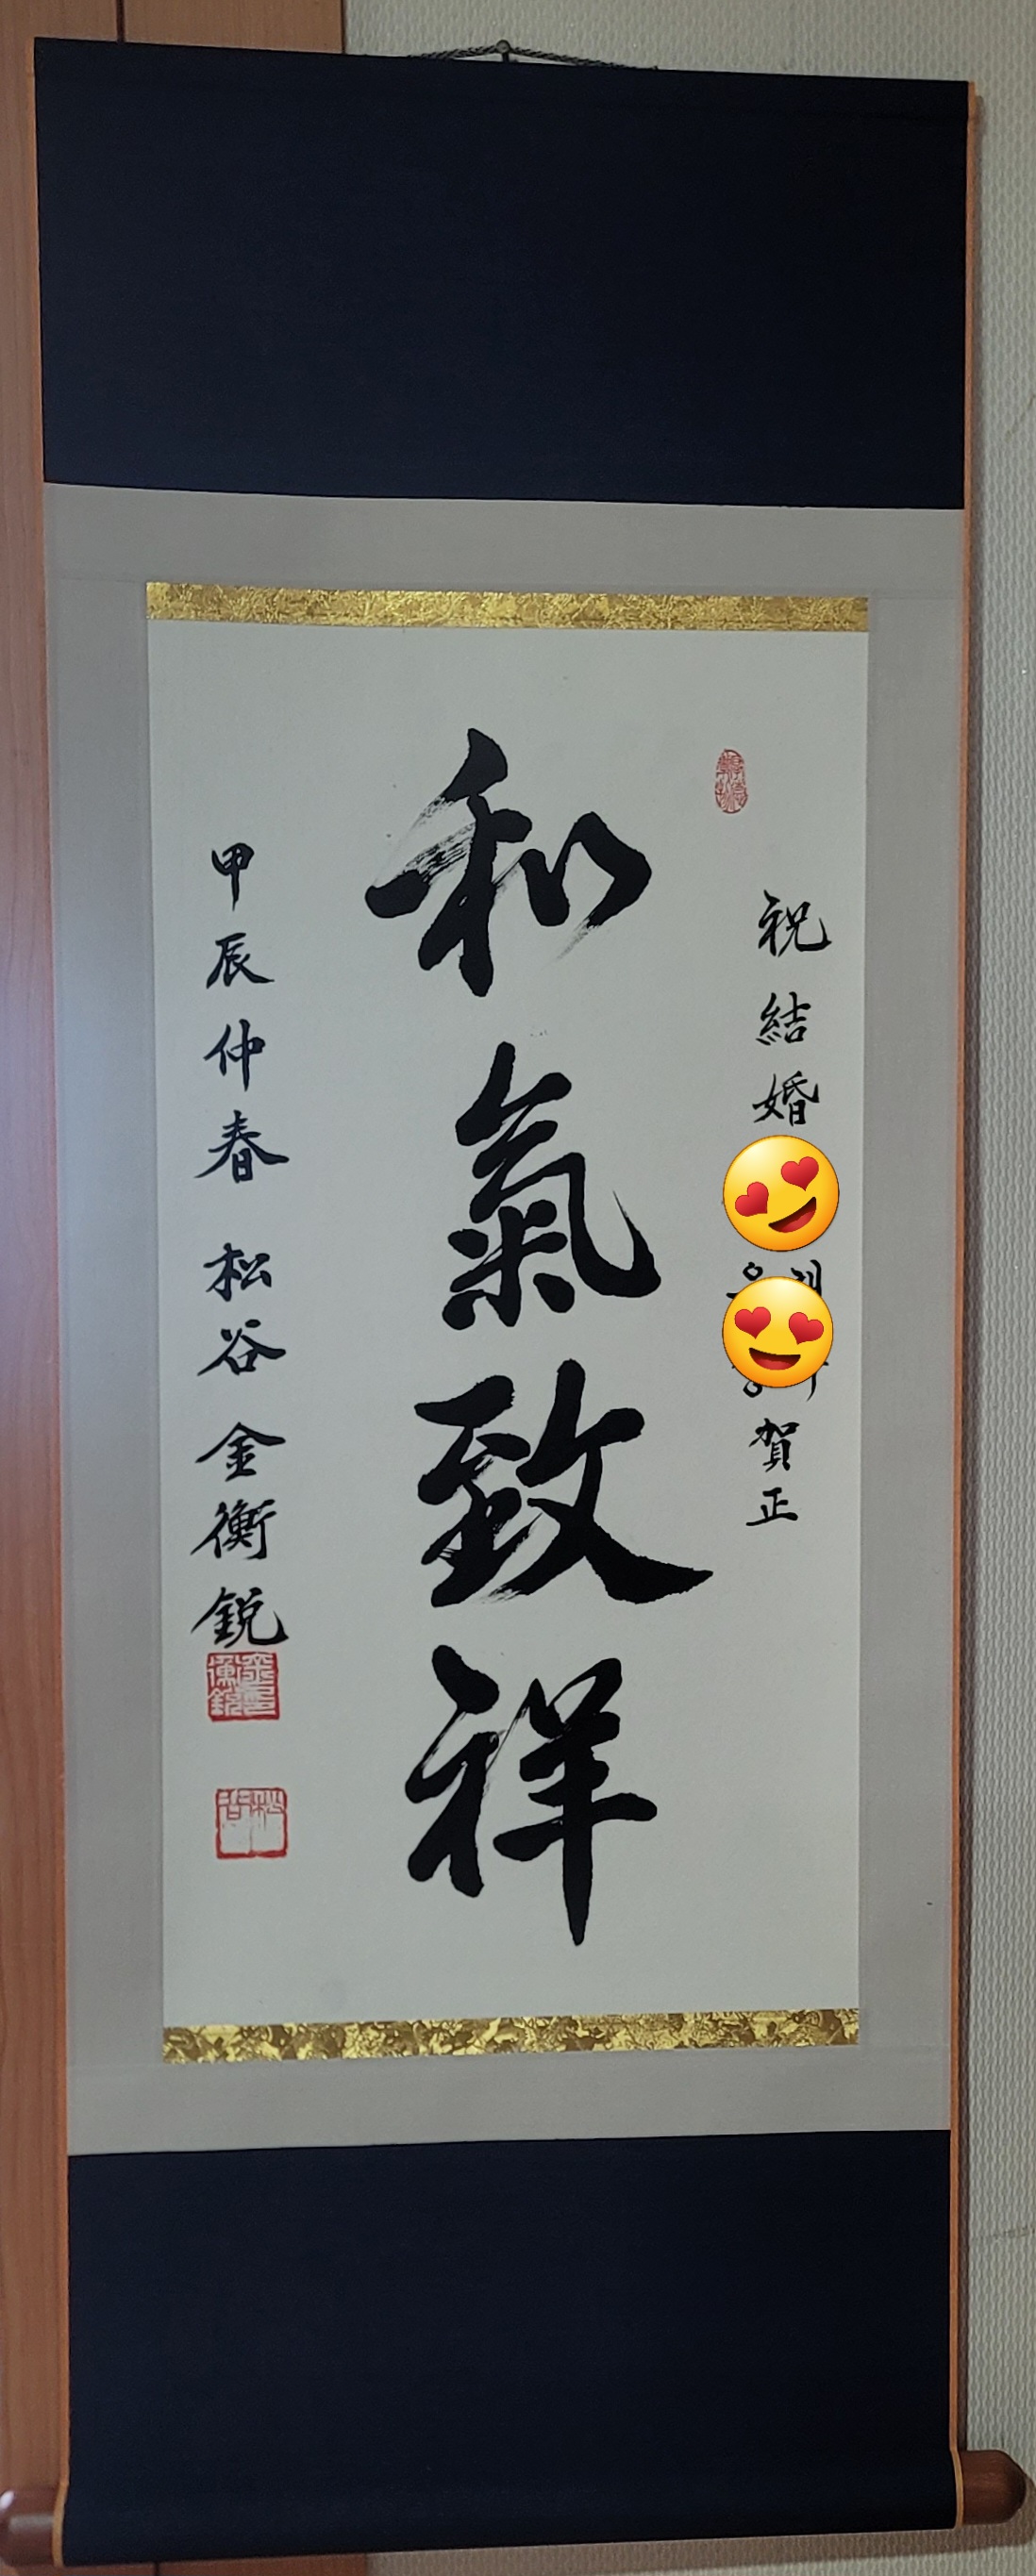 祝結婚
賀正
和氣致祥
甲辰仲春 松谷 金衡銳